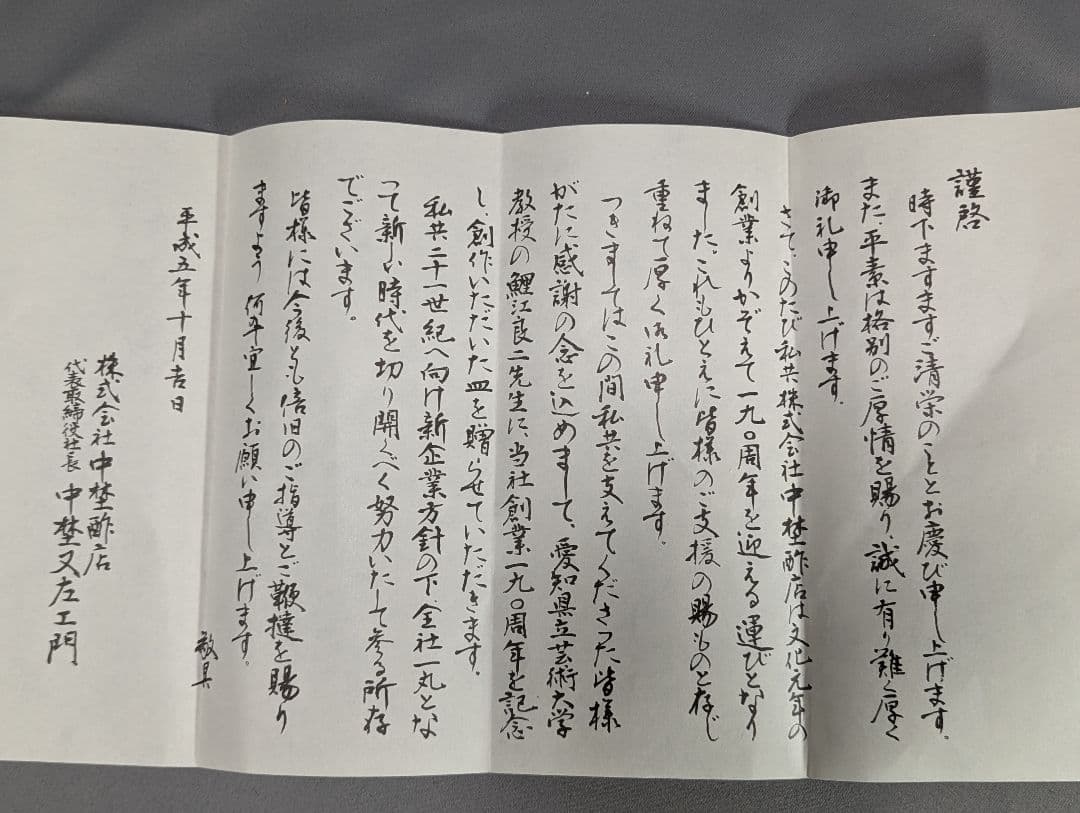 謹啓
時下ますますご清栄のこととお慶び申し上げます。
また、平素は格別のご厚情を賜り、誠に有り難く厚く
御礼申し上げます。
さて、このたび私共株式会社中埜酢店は文化元年の
創業よりかぞえて一九〇周年を迎える運びとなり
ました。これもひとえに皆様のご支援の賜ものと存じ
重ねて厚く御礼申し上げます。
つきましてはこの間私共を支えてくださった皆様
がたに感謝の念を込めまして、愛知県立芸術大学
教授の鯉江良二先生に、当社創業一九〇周年を記念
し、創作いただいた皿を贈らせていただきます。
私共二十一世紀へ向け新企業方針の下、全社一丸とな
って新しい時代を切り開くべく努力いたして参る所存
でございます。
皆様には今後とも倍旧のご指導とご鞭撻を賜り
ますよう何卒宜しくお願い申し上げます。
敬具
平成五年十月吉日
株式会社中埜酢店
代表取締役社長 中埜又左エ門